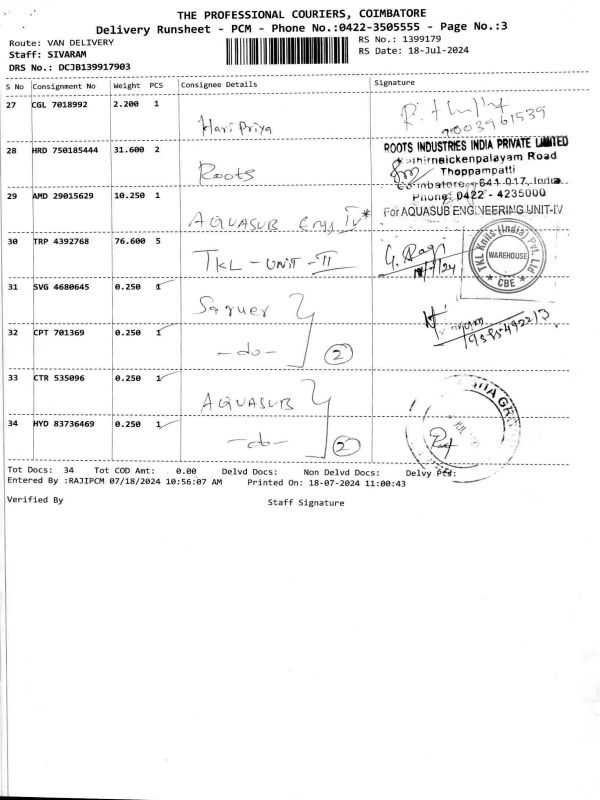 THE PROFESSIONAL COURIERS, COIMBATORE
Delivery Runsheet - PCM - Phone No.:0422-3505555 - Page No.:3
Route: VAN DELIVERY
RS No.: 1399179
Staff: SIVARAM
RS Date: 18-Jul-2024
DRS No.: DCJB139917903
S No Consignment No Weight PCS Consignee Details Signature
27 CGL 7018992 2.200 1
Hari Priya
9003961539
28 HRD 750185444 31.600 2
Roots
ROOTS INDUSTRIES INDIA PRIVATE LIMITED
Kathirnaickenpalayam Road
Thoppampatti
Coimbatore - 641 017, India
Phone: 0422 - 4235000
29 AMD 29015629 10.250 1
AQUASUB Engg IV*
For AQUASUB ENGINEERING UNIT-IV
30 TRP 4392768 76.600 5
TKL - UNIT - II
TKL Knits (India) Pvt. Ltd
WAREHOUSE
* CBE *
31 SVG 4680645 0.250 1
32 CPT 701369 0.250 1
- do - 2
33 CTR 535096 0.250 1
AQUASUB
34 HYD 83736469 0.250 1
- do - 2
Tot Docs: 34 Tot COD Amt: 0.00 Delvd Docs: Non Delvd Docs: Delvy Pcs:
Entered By :RAJIPCM 07/18/2024 10:56:07 AM Printed On: 18-07-2024 11:00:43
Verified By Staff Signature